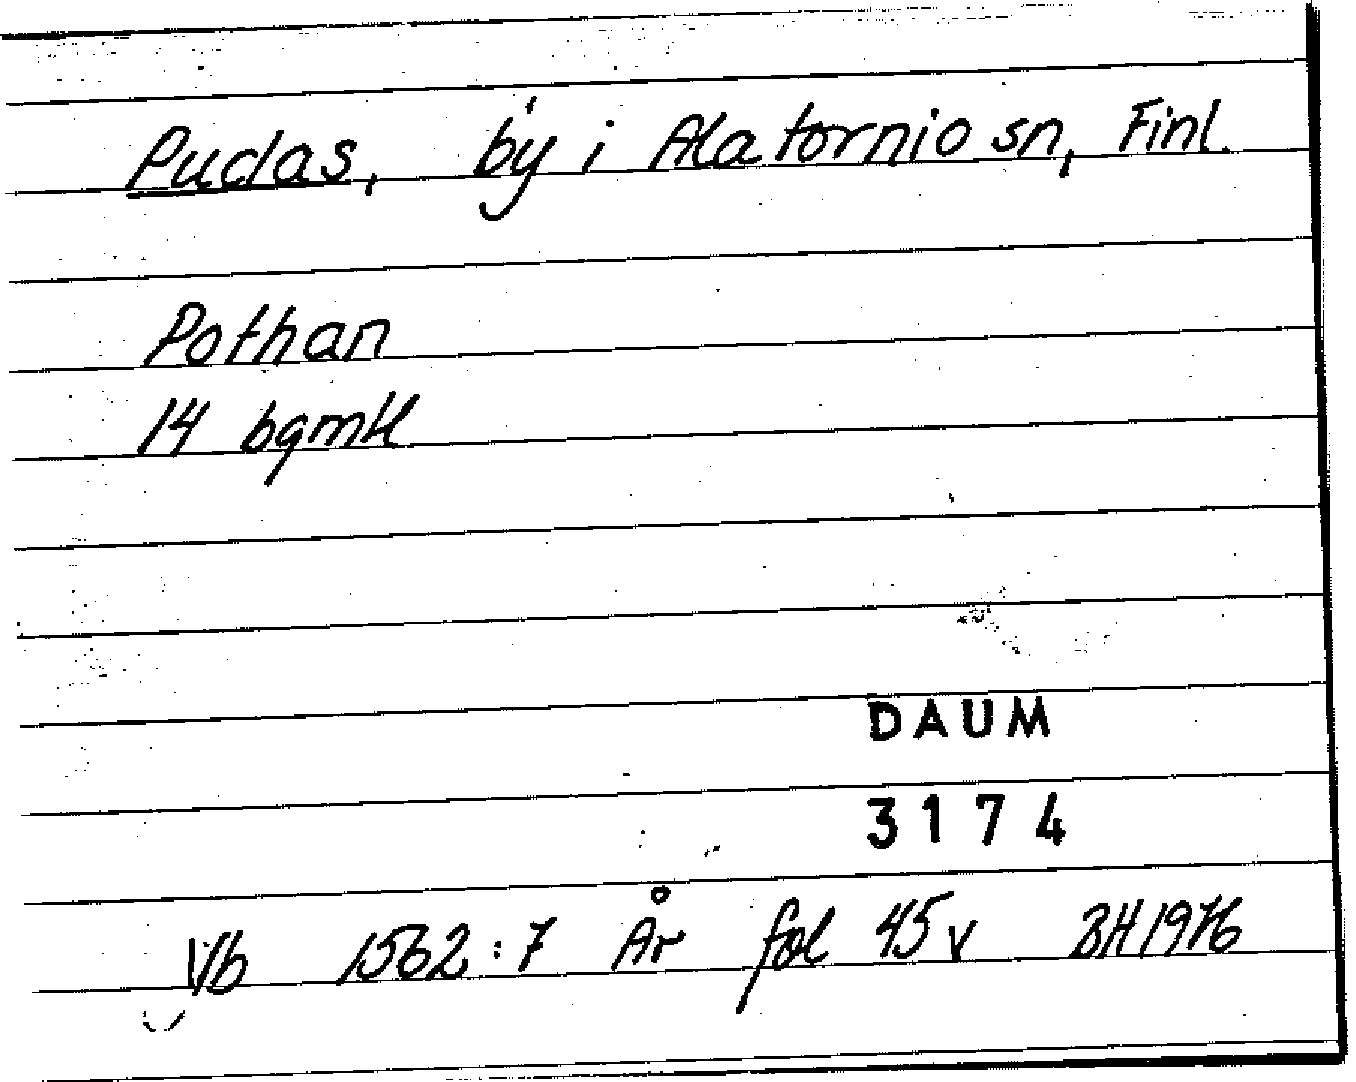 Pudas, by i Alatornio sn, Finl.
Pothan
14 bgmtl
DAUM
3174
Vb 1562:7 År fol 45v BH1976